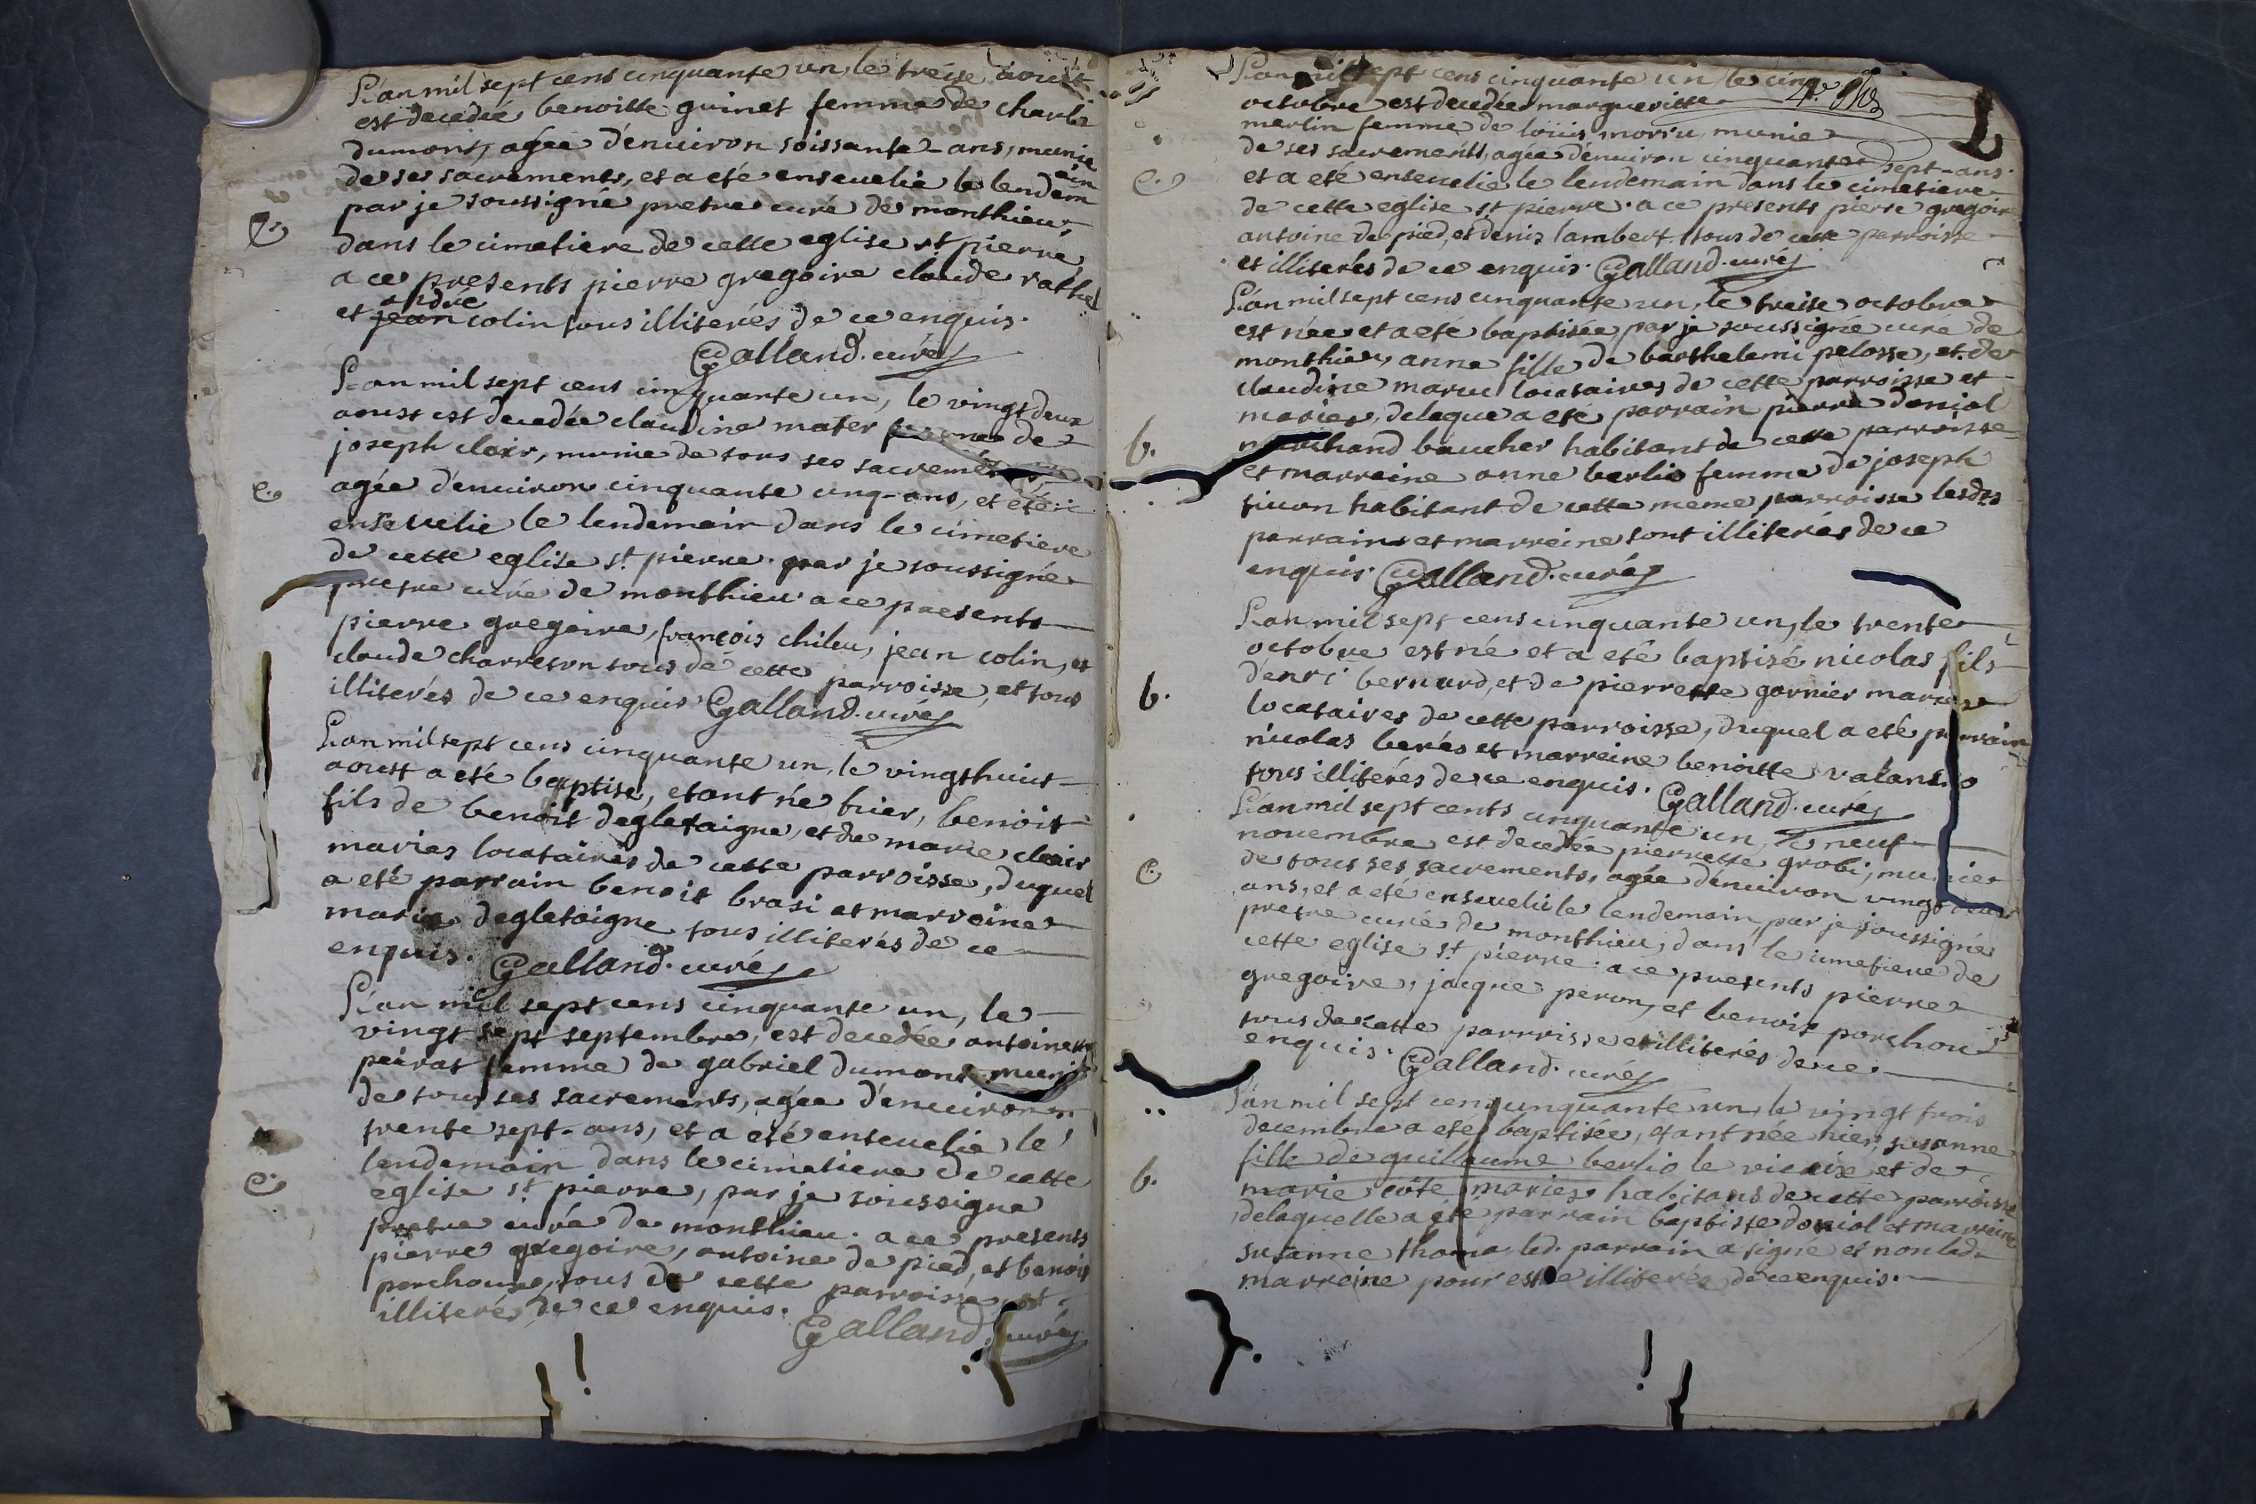 L'an mil sept cens cinquante un, le treise aoust
est decedée benoitte guinet femme de charle
dumont, agée d'enuiron soissante-ans, munie
de ses sacrements, et a eté enseuelie le lendemain
par je soussigné pretre curé de monthieu,
dans le cimetiere de cette eglise st pierre,
a ce presents pierre gregoire claude rathel
et jean andré colin tous illiterés de ce enquis.
Galland. curé
L'an mil sept cens cinquante un, le vingt deux
aoust est decedée claudine mater femme de
joseph clair, munie de tous ses sacrements,
agée d'enuiron cinquante cinq-ans, et eté
enseuelie le lendemain dans le cimetiere
de cette eglise st. pierre. par je soussigné
pretre curé de monthieu a ce presents
pierre gregoire, françois chileu, jean colin, et
claude charreton tous de cette parroisse, et tous
illiterés de ce enquis Galland. curé
L'an mil sept cens cinquante un, le vingthuict
aoust a eté baptise, etant né hier, benoit
fils de benoit degletaigne, et de marie clair
maries locataires de cette parroisse, duquel
a eté parrain benoit brasi et marreine
marie degletaigne tous illiterés de ce
enquis. Galland. curé
L'an mil sept cens cinquante un, le
vingt sept septembre, est decedée antoinette
peirat femme de gabriel dumont munie
de tous ses sacrements, agée d'enuiron
trente sept-ans, et a eté enseuelie le
lendemain dans le cimetiere de cette
eglise st. pierre, par je soussigné
pretre curé de monthieu. a ce presents
pierre gregoire, antoine de pied, et benoit
porchoux, tous de cette parroisse, et
illiterés, de ce enquis.
Galland. curé
L'an mil sept cens cinquante un, le cinq
octobre est decedée margueritte
merlin femme de loüis morru, munie
de ses sacrements, agée d'enuiron cinquante sept-ans.
et a eté enseuelie le lendemain dans le cimetiere
de cette eglise st. pierre. a ce presents pierre gregoire
antoine de pied, et denis lambert. tous de cette parroisse
et illiterés de ce enquis. Galland. curé
L'an mil sept cens cinquante un, le treise octobre
est née et a eté baptisée par je soussigné curé de
monthieu, anne fille de barthelemi pelosse, et de
claudine maruc locataires de cette parroisse et
maries, delaque a eté parrain pierre doniol
marchand boucher habitant de cette parroisse
et marreine anne berlio femme de joseph
ticon habitant de cette meme parroisse lesdts
parrain et marreine sont illiterés de ce
enquis. Galland. curé
L'an mil sept cens cinquante un, le trente
octobre est né et a eté baptisé nicolas fils
d'enri bernard, et de pierrette garnier maries
locataires de cette parroisse, duquel a eté parrain
nicolas berés et marreine benoitte valansio
tous illiterés de ce enquis. Galland. curé
L'an mil sept cents cinquante un, le neuf
nouembre est decedée pierrette grobi, munie
de tous ses sacrements, agée d'enuiron vingt deux
ans, et a eté enseuelie le lendemain, par je soussigné
pretre curé de monthieu, dans le cimetiere de
cette eglise st. pierre. a ce presents pierre
gregoire, jacque peron, et benoit porchoux
tous de cette parroisse et illiterés de ce
enquis. Galland. curé
L'an mil sept cens cinquante un, le vingt trois
decembre a eté baptisée, etant née hier, susanne
fille de guilaume berlio le vieüix et de
marie côte maries habitans de cette parroisse
delaquelle a eté parrain baptiste doniol et marreine
susanne thoma led. parrain a signé et non lad.
marreine pour estre illiterés de ce enquis.